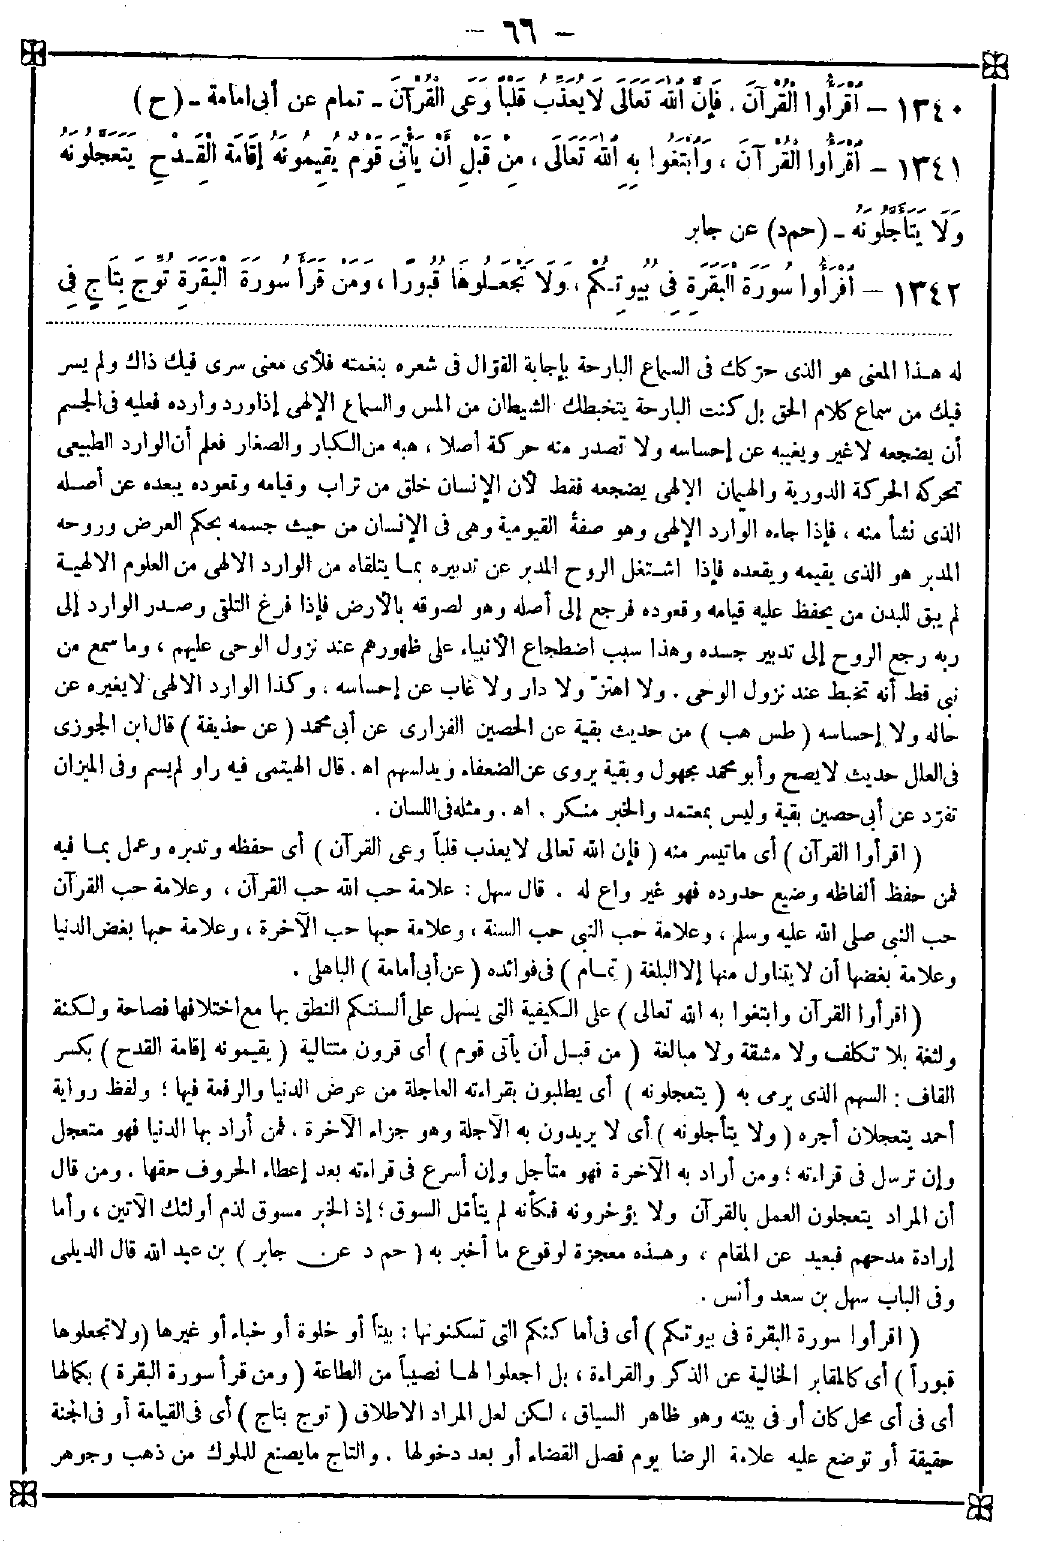 - ٦٦ -
١٣٤٠ - اقْرَأُوا الْقُرْآنَ. فَإِنَّ اللهَ تَعَالَى لَا يُعَذِّبُ قَلْبًا وَعَى الْقُرْآنَ - تمام عن أبى امامة - (ح)
١٣٤١ - اقْرَأُوا الْقُرْآنَ، وَابْتَغُوا بِهِ اللهَ تَعَالَى، مِنْ قَبْلِ أَنْ يَأْتِىَ قَوْمٌ يُقِيمُونَهُ إِقَامَةَ الْقِدْحِ يَتَعَجَّلُونَهُ
وَلَا يَتَأَجَّلُونَهُ - (حم د) عن جابر
١٣٤٢ - اقْرَأُوا سُورَةَ الْبَقَرَةِ فِى بُيُوتِكُمْ، وَلَا تَجْعَلُوهَا قُبُورًا، وَمَنْ قَرَأَ سُورَةَ الْبَقَرَةِ تُوِّجَ بِتَاجٍ فِى
له هذا المعنى هو الذى حركك فى السماع البارحة بإجابة القوّال فى شعره بنغمته فلأى معنى سرى فيك ذاك ولم يسر
فيك من سماع كلام الحق بل كنت البارحة يتخبطك الشيطان من المس والسماع الإلهى إذا ورد وارده فعليه فى الجسم
أن يضجعه لا غير ويغيبه عن إحساسه ولا تصدر منه حركة أصلا، هبه من الكبار والصغار فعلم أن الوارد الطبيعى
تحركه الحركة الدورية والهيمان الإلهى يضجعه فقط لأن الإنسان خلق من تراب وقيامه وقعوده يبعده عن أصله
الذى نشأ منه، فإذا جاءه الوارد الإلهى وهو صفة القيومية وهى فى الإنسان من حيث جسمه بحكم العرض وروحه
المدبر هو الذى يقيمه ويقعده فإذا اشتغل الروح المدبر عن تدبيره بما يتلقاه من الوارد الالهى من العلوم الالهية
لم يبق للبدن من يحفظ عليه قيامه وقعوده فرجع إلى أصله وهو لصوقه بالأرض فإذا فرغ التلقى وصدر الوارد إلى
ربه رجع الروح إلى تدبير جسده وهذا سبب اضطجاع الأنبياء على ظهورهم عند نزول الوحى عليهم، وما سمع من
نبى قط أنه تخبط عند نزول الوحى. ولا اهتزّ ولا دار ولا غاب عن إحساسه، وكذا الوارد الالهى لا يغيره عن
حاله ولا إحساسه (طس هب) من حديث بقية عن الحصين الفزارى عن أبى محمد (عن حذيفة) قال ابن الجوزى
فى العلل حديث لا يصح وأبو محمد مجهول وبقية يروى عن الضعفاء ويدلسهم اه. قال الهيتمى فيه راو لم يسم وفى الميزان
تفرّد عن أبى حصين بقية وليس بمعتمد والخبر منكر. اه. ومثله فى اللسان.
(اقرأوا القرآن) أى ما تيسر منه (فإن الله تعالى لا يعذب قلباً وعى القرآن) أى حفظه وتدبره وعمل بما فيه
فمن حفظ ألفاظه وضيع حدوده فهو غير واع له. قال سهل: علامة حب الله حب القرآن، وعلامة حب القرآن
حب النبى صلى الله عليه وسلم، وعلامة حب النبى حب السنة، وعلامة حبها حب الآخرة، وعلامة حبها بغض الدنيا
وعلامة بغضها أن لا يتناول منها إلا البلغة (تمام) فى فوائده (عن أبى أمامة) الباهلى.
(اقرأوا القرآن وابتغوا به الله تعالى) على الكيفية التى يسهل على ألسنتكم النطق بها مع اختلافها فصاحة ولكنة
ولثغة بلا تكلف ولا مشقة ولا مبالغة (من قبل أن يأتى قوم) أى قرون متتالية (يقيمونه إقامة القدح) بكسر
القاف: السهم الذى يرمى به (يتعجلونه) أى يطلبون بقراءته العاجلة من عرض الدنيا والرفعة فيها؛ ولفظ رواية
أحمد يتعجلان أجره (ولا يتأجلونه) أى لا يريدون به الآجلة وهو جزاء الآخرة. فمن أراد بها الدنيا فهو متعجل
وإن ترسل فى قراءته؛ ومن أراد به الآخرة فهو متأجل وإن أسرع فى قراءته بعد إعطاء الحروف حقها. ومن قال
أن المراد يتعجلون العمل بالقرآن ولا يؤخرونه فكأنه لم يتأمل السوق؛ إذ الخبر مسوق لذم أولئك الآتين، وأما
إرادة مدحهم فبعيد عن المقام، وهذه معجزة لوقوع ما أخبر به (حم د عن جابر) بن عبد الله قال الديلى
وفى الباب سهل بن سعد وأنس.
(اقرأوا سورة البقرة فى بيوتكم) أى فى أماكنكم التى تسكنونها: بيتاً أو خلوة أو خباء أو غيرها (ولا تجعلوها
قبوراً) أى كالمقابر الخالية عن الذكر والقراءة، بل اجعلوا لها نصيباً من الطاعة (ومن قرأ سورة البقرة) بكمالها
أى فى أى محل كان أو فى بيته وهو ظاهر السياق، لكن لعل المراد الاطلاق (توج بتاج) أى فى القيامة أو فى الجنة
حقيقة أو توضع عليه علامة الرضا يوم فصل القضاء أو بعد دخولها. والتاج ما يصنع للملوك من ذهب وجوهر